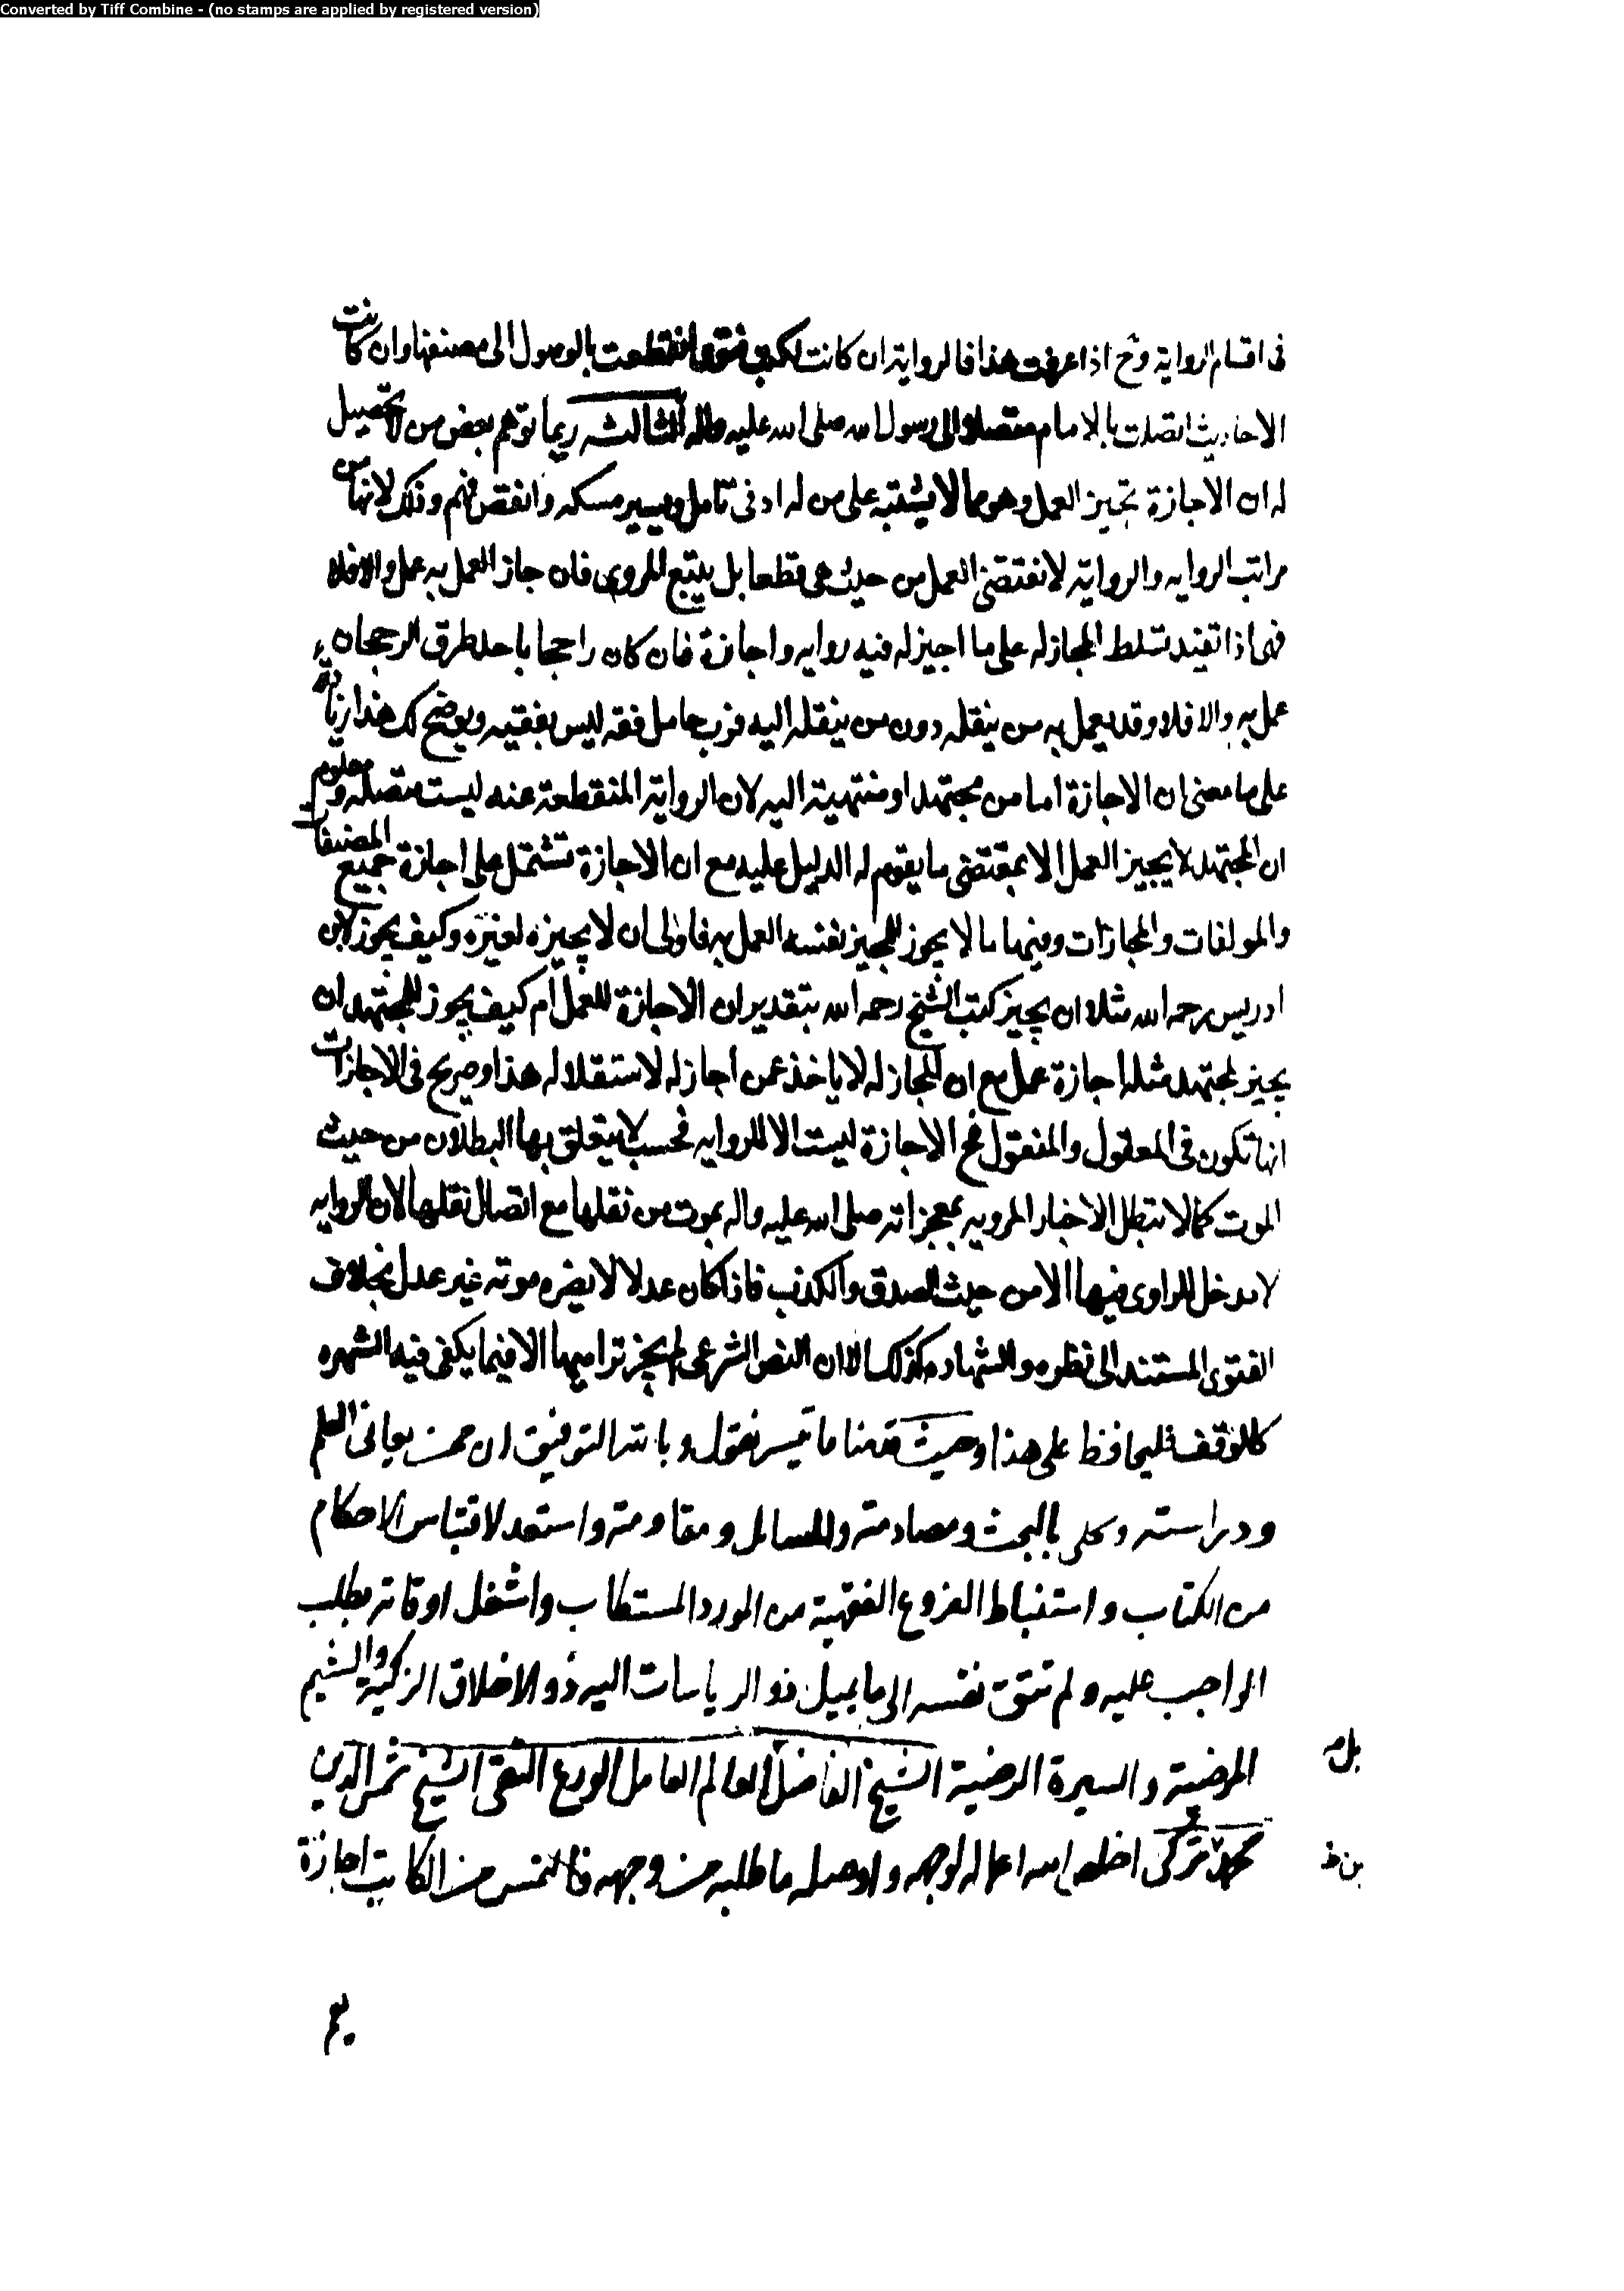 Converted by Tiff Combine - (no stamps are applied by registered version)
فى اقسام الرواية وح اذا عرفت هذا فالرواية ان كانت لكتب فتوى انقطعت بالوصول الى مصنفها وان كانت
الاحاديث اتصلت بالامام متصلا والى رسول الله صلى الله عليه واله الثالثه ربما توهم بعض من لا تحصيل
له ان الاجازة تجيز العمل وهو مما لا يشتبه على من له ادنى تامل ويسير مسكه وانقص فهم وذلك لانها من
مراتب الروايه والرواية لا تقتضى العمل من حيث هى قطعا بل يتبع المروى فان جاز العمل به عمل والا فلا
فهى اذا تفيد تسلط المجاز له على ما اجيز له فيه روايه واجازة فان كان راجحا باحد طرق الرجحان
عمل به والا فلا وقد يعمل به من ينقله دون من ينقله اليه فرب حامل فقه ليس بفقيه ويوضح لك هذا زيادة
على ما مضى ان الاجازة اما من مجتهد او منتهية اليه لان الرواية المنقطعة عنه ليست متصله ومعلوم
ان المجتهد لا يجيز العمل الا بمقتضى ما يقوم له الدليل عليه مع ان الاجازة تشتمل على اجازة جميع المصنفات
والمولفات والمجازات وفيها ما لا يجوز للمجيز نفسه العمل به فاولى ان لا يجيزه لغيره وكيف يجوز لابن
ادريس رحمه الله مثلا ان يجيز كتب الشيخ رحمه الله بتقدير ان الاجازة للعمل ام كيف يجوز للمجتهد ان
يجيز لمجتهد مثله اجازة عمل مع ان المجاز له لا ياخذ عمن اجاز له لاستقلاله هذا وصريح فى الاجازات
انها تكون فى المعقول والمنقول فح الاجازة ليست الا للروايه فحسب لا يتعلق بها البطلان من حيث
الموت كما لا تبطل الاخبار المرويه بمعجزاته صلى الله عليه واله بموت من نقلها مع اتصال نقلها لان الروايه
لا مدخل للراوى فيها الا من حيث الصدق والكذب فاذا كان عدلا لا يضره موته غير عدل بخلاف
الفتوى المستند الى نظره والشهاده كذلك الا ان النص الشرعى لم يجز تراميها الا فيما يكفى فيه الشهره
كالوقف فليحافظ على هذا وحيث قدمنا ما تيسر فنقول وبالله التوفيق ان ممن يعانى العلم
ودراسته وتحلى بالبحث ومصادمته والمسائل ومقاومته واستعد لاقتباس الاحكام
من الكتاب واستنباط الفروع الفقهية من المورد المستطاب واشغل اوقاته بطلب
الواجب عليه ولم تتق نفسه الى ما يميل ذوالرياسات اليه ذو الاخلاق الزكية والشيم
المرضية والسيرة الرضية الشيخ الفاضل العالم العامل الورع التقى الشيخ شمس الدين
محمد تركى اخلص الله اعماله لوجهه واوصله ما طلبه من وجهه فالتمس من الكاتب اجازة
بن ظ